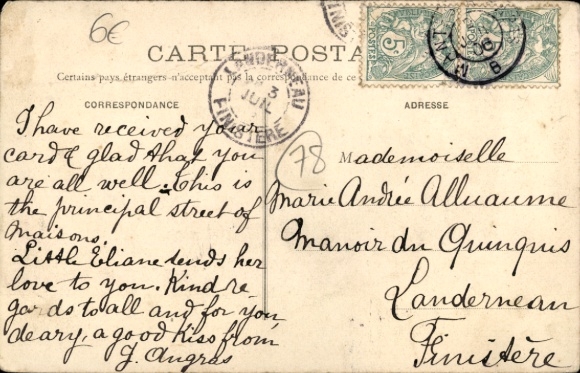 6€
CARTE POSTA
Certains pays étrangers n'acceptent pas la correspondance de ce
CORRESPONDANCE
ADRESSE
LANDERNEAU
3
JUIN
FINISTÈRE
POSTES
5
78
I have received your
card & glad that you
are all well. This is
the principal street of
Maisons.
Little Eliane sends her
love to you. Kind re
gards to all and for you
deary, a good kiss from
J. Angras
Mademoiselle
Marie Andrée Alluaume
Manoir du Quinquis
Landerneau
Finistère